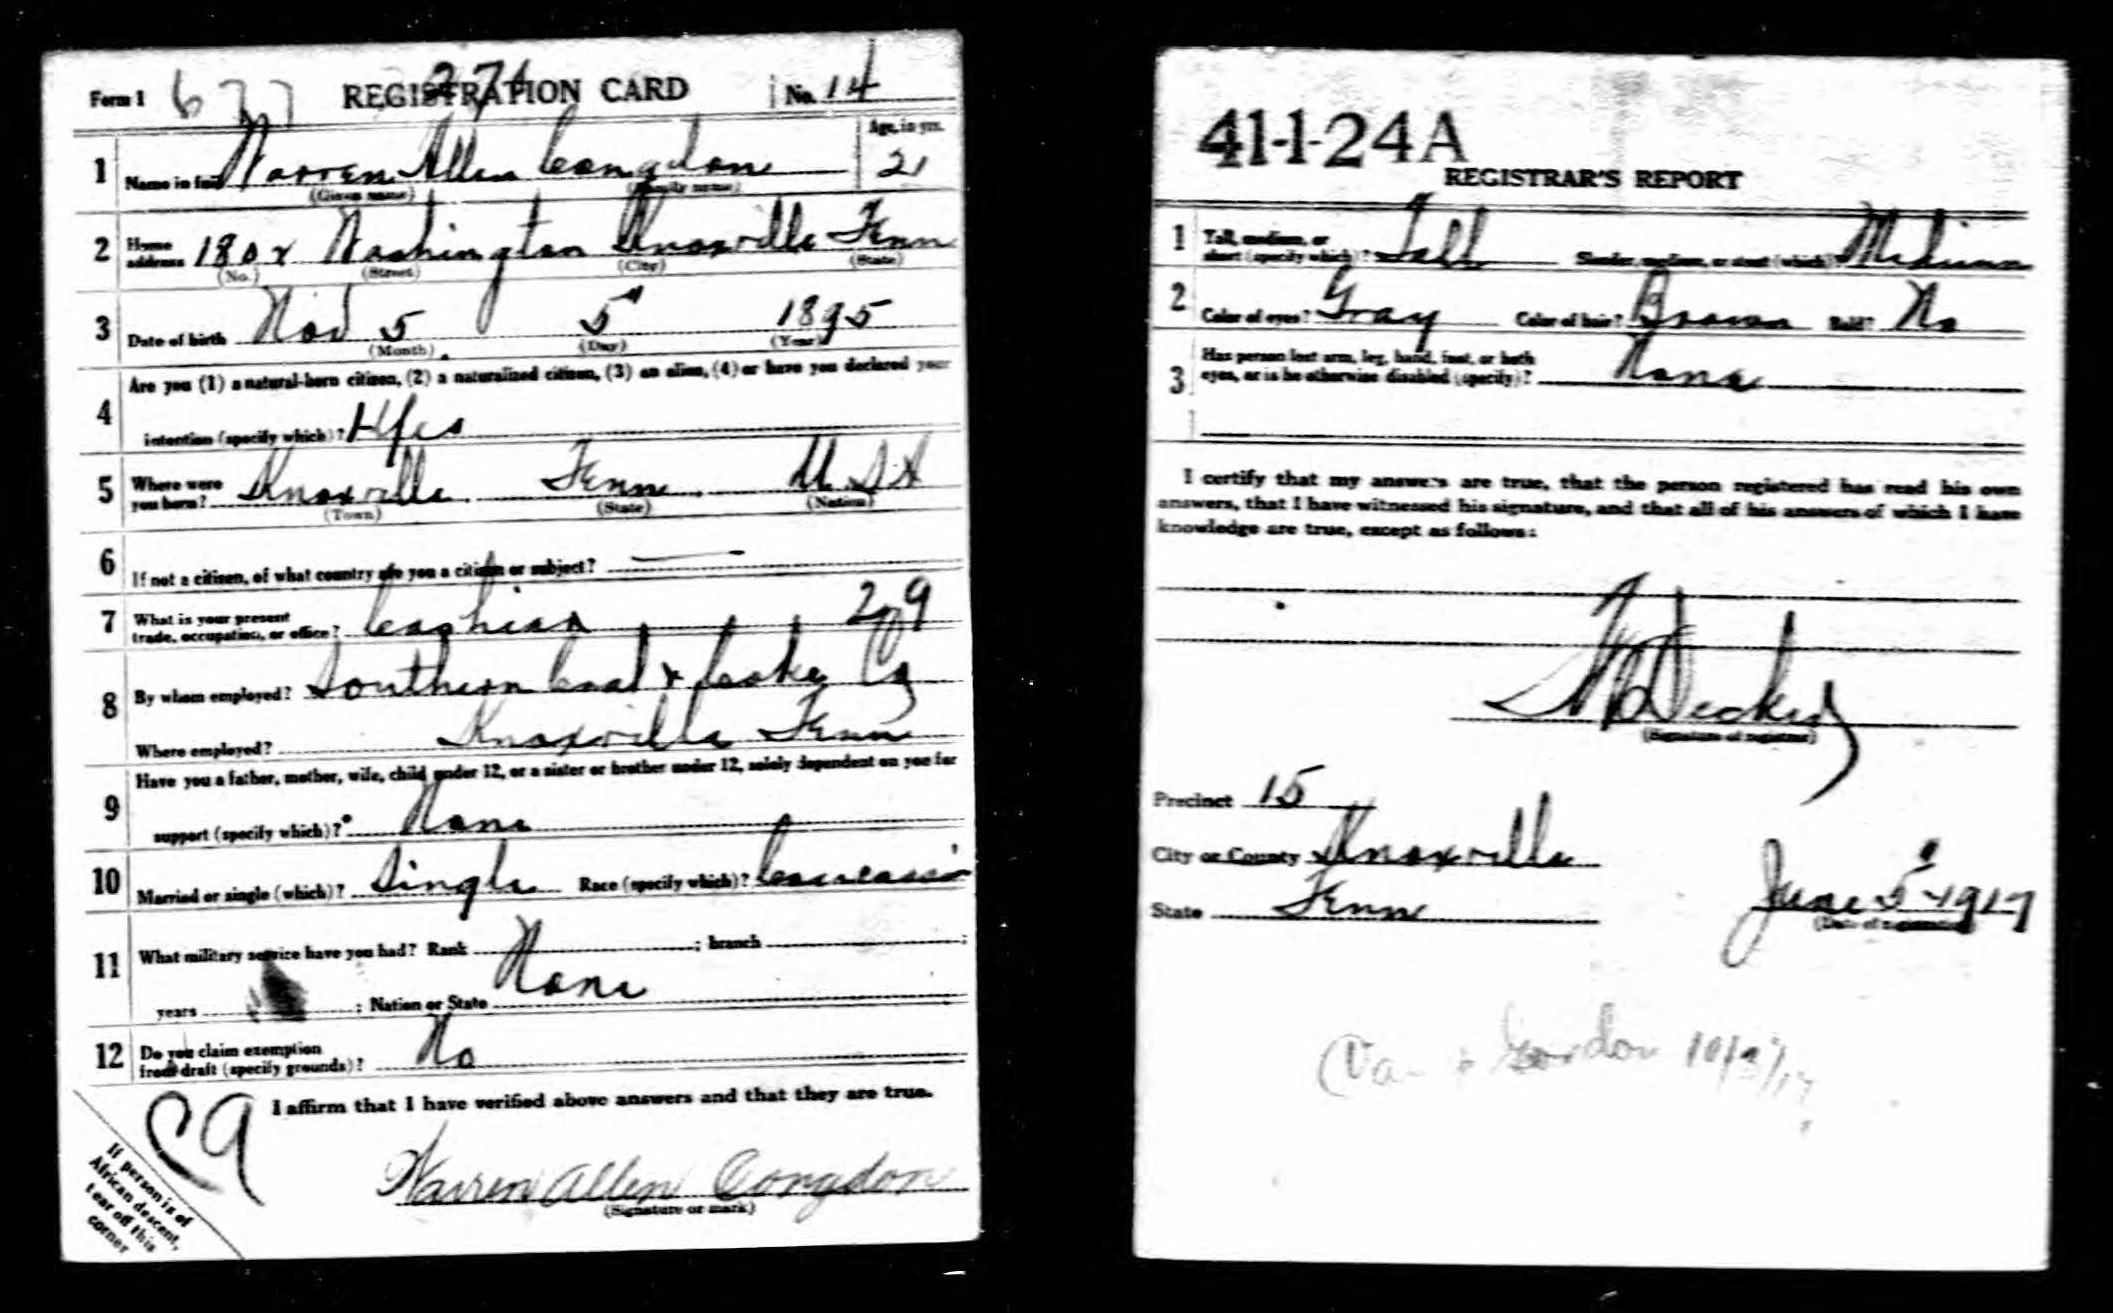 Form 1 677 274 REGISTRATION CARD No. 14
1 Name in full Warren Allen Congdon Age, in yrs. 21
(Given name) (Family name)
2 Home address 1802 Washington Knoxville Tenn
(No.) (Street) (City) (State)
3 Date of birth Nov 5 5 1895
(Month) (Day) (Year)
4 Are you (1) a natural-born citizen, (2) a naturalized citizen, (3) an alien, (4) or have you declared your
intention (specify which)? Yes
5 Where were you born? Knoxville Tenn U S A
(Town) (State) (Nation)
6 If not a citizen, of what country are you a citizen or subject? —
7 What is your present trade, occupation, or office? Cashier 29
8 By whom employed? Southern Coal & Coke Co
Where employed? Knoxville Tenn
9 Have you a father, mother, wife, child under 12, or a sister or brother under 12, solely dependent on you for
support (specify which)? None
10 Married or single (which)? Single Race (specify which)? Caucasian
11 What military service have you had? Rank None ; branch ;
years ; Nation or State
12 Do you claim exemption from draft (specify grounds)? No
I affirm that I have verified above answers and that they are true.
Warren Allen Congdon
(Signature or mark)
If person is of
African descent,
tear off this
corner
41-1-24A
REGISTRAR'S REPORT
1 Tall, medium, or short (specify which)? Tall Slender, medium, or stout (which)? Medium
2 Color of eyes? Gray Color of hair? Brown Bald? No
3 Has person lost arm, leg, hand, foot, or both
eyes, or is he otherwise disabled (specify)? None
I certify that my answers are true, that the person registered has read his own
answers, that I have witnessed his signature, and that all of his answers of which I have
knowledge are true, except as follows:
Decker
(Signature of registrar)
Precinct 15
City or County Knoxville
State Tenn June 5-1917
(Date of registration)
Gordon